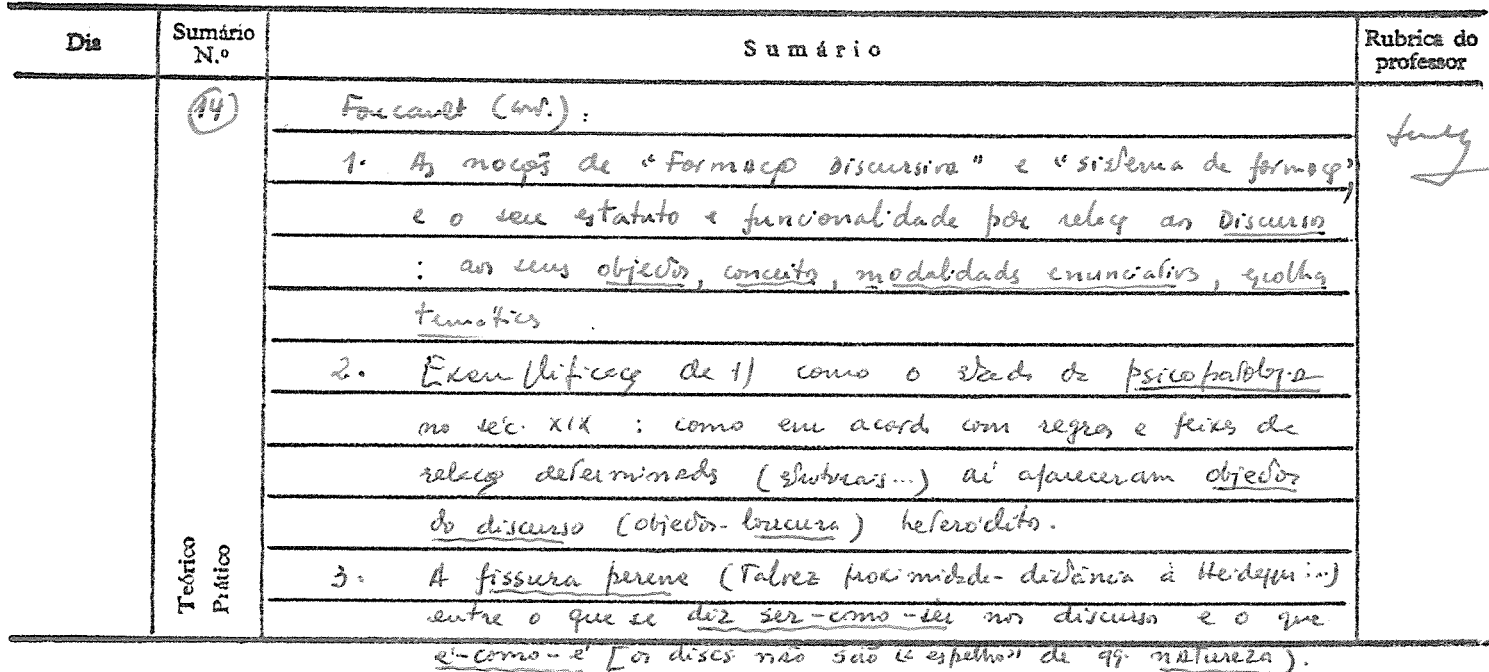 Dia Sumário N.º Sumário Rubrica do professor
14 Foucault (cont.):
1. As noçõs de "Formaçõ Discursiva" e "sistema de formaçõ",
e o seu estatuto e funcionalidade por relaç ao Discurso
: aos seus objectos, conceitos, modalidads enunciativs, escolha
temátics
2. Exemplificaç de 1) como o de psicopatologia
no séc. XIX : como em acord com regras e feixes de
relaçõ determinads (...) aí apareceram objectos
do discurso (objectos-loucura) heteróclitos.
Teórico
Prático
3. A fissura perene (Talvez proximidade-distância à Heidegger...)
entre o que se diz ser-como-ser nos discurso e o que
é-como-é [os discs não são "espelho" de qq. natureza).